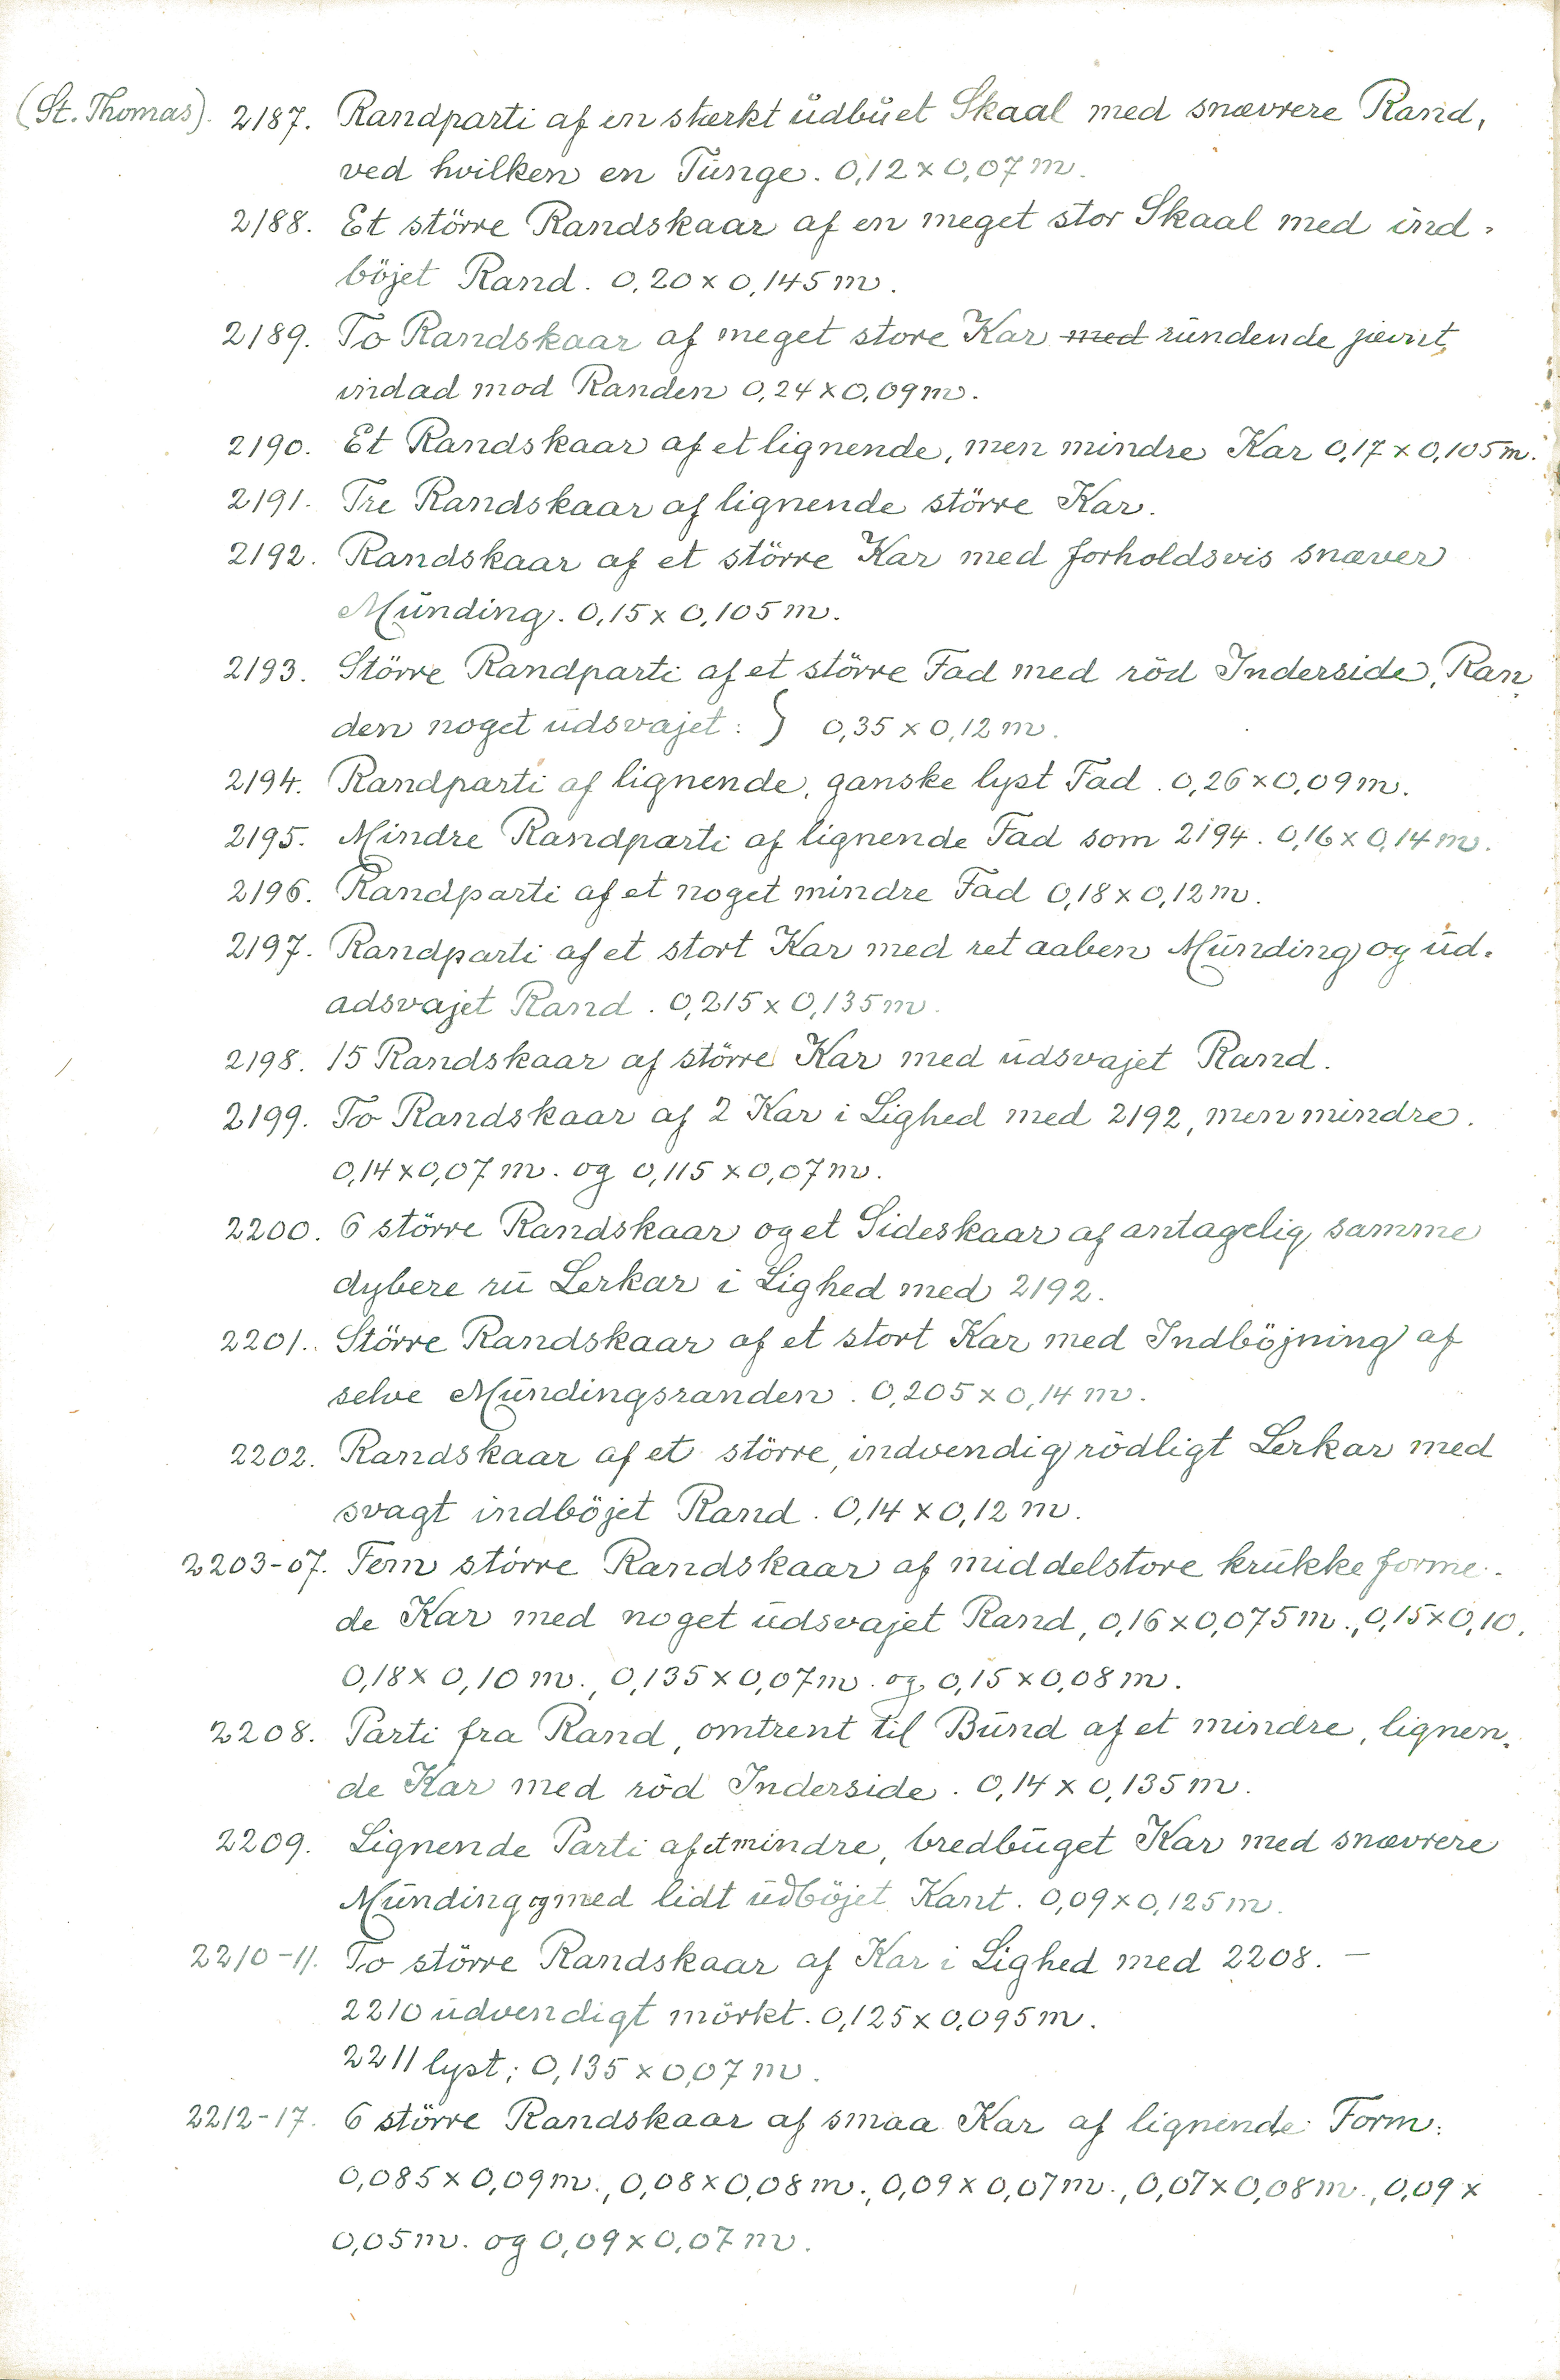 (St. Thomas). 2187. Randparti af en stærkt ŭdbŭet Skaal med snævrere Rand,
ved hvilken en Tŭnge. 0,12 x 0,07 m.
2188. Et större Randskaar af en meget stor Skaal med ind-
böjet Rand. 0,20 x 0,145 m.
2189. To Randskaar af meget store Kar ~~med~~ rŭndende jævnt
indad mod Randen 0,24 x 0,09 m.
2190. Et Randskaar af et lignende, men mindre Kar 0,17 x 0,105 m.
2191. Tre Randskaar af lignende större Kar.
2192. Randskaar af et större Kar med forholdsvis snæver
Mŭnding. 0,15 x 0,105 m.
2193. Större Randparti af et större Fad med röd Inderside, Ran
den noget ŭdsvajet: } 0,35 x 0,12 m.
2194. Randparti af lignende, ganske lyst Fad. 0,26 x 0,09 m.
2195. Mindre Randparti af lignende Fad som 2194. 0,16 x 0,14 m.
2196. Randparti af et noget mindre Fad 0,18 x 0,12 m.
2197. Randparti af et stort Kar med ret aaben Mŭnding og ŭd-
adsvajet Rand. 0,215 x 0,135 m.
2198. 15 Randskaar af större Kar med ŭdsvajet Rand.
2199. To Randskaar af 2 Kar i Lighed med 2192, men mindre.
0,14 x 0,07 m. og 0,115 x 0,07 m.
2200. 6 större Randskaar og et Sideskaar af antagelig samme
dybere rŭ Lerkar i Lighed med 2192.
2201. Större Randskaar af et stort Kar med Indböjning af
selve Mŭndingsranden. 0,205 x 0,14 m.
2202. Randskaar af et större, indvendig rödligt Lerkar med
svagt indböjet Rand. 0,14 x 0,12 m.
2203-07. Fem större Randskaar af middelstore krŭkkeforme-
de Kar med noget ŭdsvajet Rand, 0,16 x 0,075 m., 0,15 x 0,10,
0,18 x 0,10 m., 0,135 x 0,07 m. og 0,15 x 0,08 m.
2208. Parti fra Rand, omtrent til Bŭnd af et mindre, lignen-
de Kar med röd Inderside. 0,14 x 0,135 m.
2209. Lignende Parti af et mindre, bredbŭget Kar med snævrere
Mŭnding og med lidt ŭdböjet Kant. 0,09 x 0,125 m.
2210-11. To större Randskaar af Kar i Lighed med 2208. —
2210 ŭdvendigt mörkt. 0,125 x 0,095 m.
2211 lyst; 0,135 x 0,07 m.
2212-17. 6 större Randskaar af smaa Kar af lignende Form:
0,085 x 0,09 m., 0,08 x 0,08 m., 0,09 x 0,07 m., 0,07 x 0,08 m., 0,09 x
0,05 m. og 0,09 x 0,07 m.